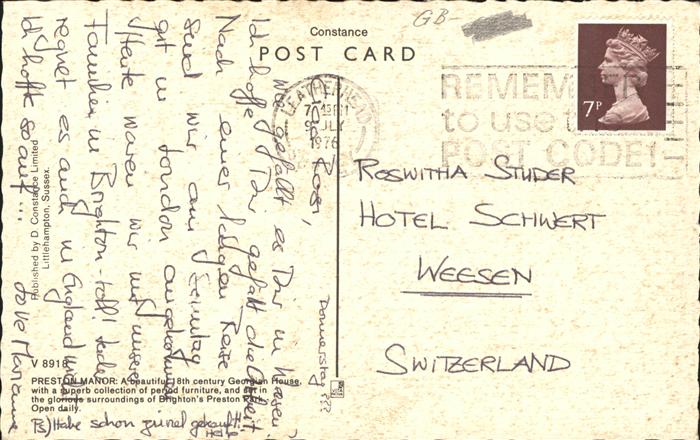 Constance
POST CARD
GB-
LEATHERHEAD
7 45 PM
9 JLY
1976
REMEMBER
to use the
POST CODE!
7P
Donnerstag ???
Roswitha Studer
Hotel Schwert
Weesen
Switzerland
Rosi,
Wie gefällt es Dir in Weesen?
Ich hoffe, Dir gefällt die Arbeit
Nach einer langen Reise
sind wir am
gut in London angekommen
Heute waren wir mit unseren
Familien in Brighton - toll! Leider
regnet es auch in England
Ich hoffe so auf...
Love Marianne
Ps) Habe schon zuviel gekauft!!
Published by D. Constance Limited
Littlehampton, Sussex.
V 8916
PRESTON MANOR: A beautiful 18th century Georgian House,
with a superb collection of period furniture, and set in
the glorious surroundings of Brighton's Preston
Open daily.